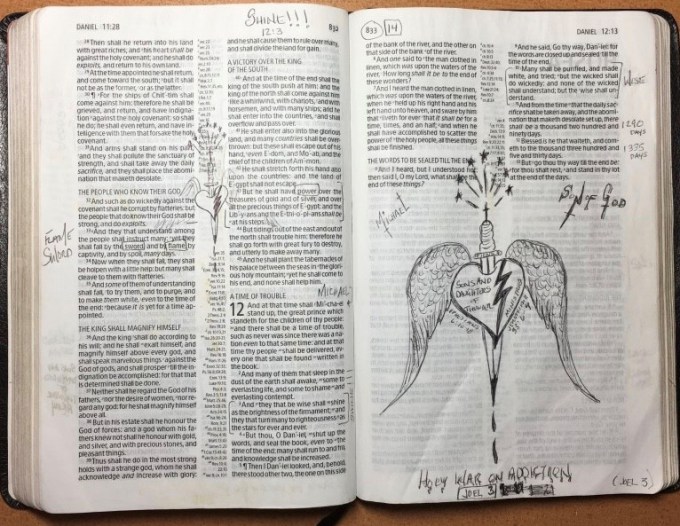 DANIEL 11:28
SHINE!!!
12:3
832
28 Then shall he return into his land
with great riches; and his heart shall be
against the holy covenant; and he shall do
exploits, and return to his own land.
29 At the time appointed he shall return,
and come toward the south; but it shall
not be as the former, or as the latter.
30 ¶ For the ships of Chit-tim shall
come against him: therefore he shall be
grieved, and return, and have indigna-
tion against the holy covenant: so shall
he do; he shall even return, and have in-
telligence with them that forsake the holy
covenant.
31 And arms shall stand on his part,
and they shall pollute the sanctuary of
strength, and shall take away the daily
sacrifice, and they shall place the abomi-
nation that maketh desolate.
THE PEOPLE WHO KNOW THEIR GOD
32 And such as do wickedly against the
covenant shall he corrupt by flatteries: but
the people that do know their God shall be
strong, and do exploits.
33 And they that understand among
the people shall instruct many: yet they
shall fall by the sword, and by flame, by
captivity, and by spoil, many days.
FLAME
SWORD
34 Now when they shall fall, they shall
be holpen with a little help: but many shall
cleave to them with flatteries.
35 And some of them of understanding
shall fall, to try them, and to purge, and
to make them white, even to the time of
the end: because it is yet for a time ap-
pointed.
THE KING SHALL MAGNIFY HIMSELF
36 And the king shall do according to
his will; and he shall exalt himself, and
magnify himself above every god, and
shall speak marvelous things against the
God of gods, and shall prosper till the in-
dignation be accomplished: for that that
is determined shall be done.
37 Neither shall he regard the God of his
fathers, nor the desire of women, nor re-
gard any god: for he shall magnify himself
above all.
38 But in his estate shall he honour the
God of forces: and a god whom his fa-
thers knew not shall he honour with gold,
and silver, and with precious stones, and
pleasant things.
39 Thus shall he do in the most strong
holds with a strange god, whom he shall
acknowledge and increase with glory:
and he shall cause them to rule over many,
and shall divide the land for gain.
A VICTORY OVER THE KING
OF THE SOUTH
40 And at the time of the end shall the
king of the south push at him: and the
king of the north shall come against him
like a whirlwind, with chariots, and with
horsemen, and with many ships; and he
shall enter into the countries, and shall
overflow and pass over.
41 He shall enter also into the glorious
land, and many countries shall be over-
thrown: but these shall escape out of his
hand, even E-dom, and Mo-ab, and the
chief of the children of Am-mon.
42 He shall stretch forth his hand also
upon the countries: and the land of
E-gypt shall not escape.
43 But he shall have power over the
treasures of gold and of silver, and over
all the precious things of E-gypt: and the
Lib-y-ans and the E-thi-o-pi-ans shall be
at his steps.
44 But tidings out of the east and out of
the north shall trouble him: therefore he
shall go forth with great fury to destroy,
and utterly to make away many.
45 And he shall plant the tabernacles of
his palace between the seas in the glori-
ous holy mountain; yet he shall come to
his end, and none shall help him.
A TIME OF TROUBLE
MICHAEL
12 And at that time shall Mi-cha-el
stand up, the great prince which
standeth for the children of thy people:
and there shall be a time of trouble,
such as never was since there was a na-
tion even to that same time: and at that
time thy people shall be delivered, ev-
ery one that shall be found written in
the book.
2 And many of them that sleep in the
dust of the earth shall awake, some to
everlasting life, and some to shame and
everlasting contempt.
3 And they that be wise shall shine
as the brightness of the firmament; and
they that turn many to righteousness as
the stars for ever and ever.
4 But thou, O Dan-iel, shut up the
words, and seal the book, even to the
time of the end: many shall run to and fro,
and knowledge shall be increased.
5 ¶ Then I Dan-iel looked, and, behold,
there stood other two, the one on this side
833
14
DANIEL 12:13
of the bank of the river, and the other on
that side of the bank of the river.
6 And one said to the man clothed in
linen, which was upon the waters of the
river, How long shall it be to the end of
these wonders?
7 And I heard the man clothed in linen,
which was upon the waters of the river,
when he held up his right hand and his
left hand unto heaven, and sware by him
that liveth for ever that it shall be for a
time, times, and an half; and when he
shall have accomplished to scatter the
power of the holy people, all these things
shall be finished.
THE WORDS TO BE SEALED TILL THE END
8 And I heard, but I understood not:
then said I, O my Lord, what shall be the
end of these things?
9 And he said, Go thy way, Dan-iel: for
the words are closed up and sealed till the
time of the end.
10 Many shall be purified, and made
white, and tried; but the wicked shall
do wickedly: and none of the wicked
shall understand; but the wise shall un-
derstand.
WISE
11 And from the time that the daily sac-
rifice shall be taken away, and the abomi-
nation that maketh desolate set up, there
shall be a thousand two hundred and
ninety days.
1290
DAYS
12 Blessed is he that waiteth, and com-
eth to the thousand three hundred and
five and thirty days.
1335
DAYS
13 But go thou thy way till the end be:
for thou shalt rest, and stand in thy lot
at the end of the days.
MICHAEL
SON OF GOD
SONS AND
DAUGHTERS
OF
THUNDER
HOLY WAR ON ADDICTION
JOEL 3
(JOEL 3)